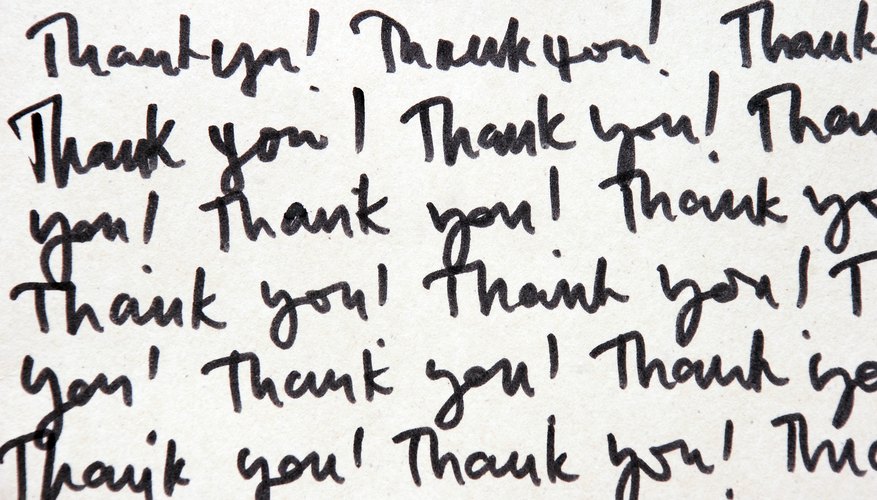 Thank you! Thank you! Thank
Thank you! Thank you! Than
you! Thank you! Thank yo
Thank you! Thank you! T
you! Thank you! Thank yo
Thank you! Thank you! Tha